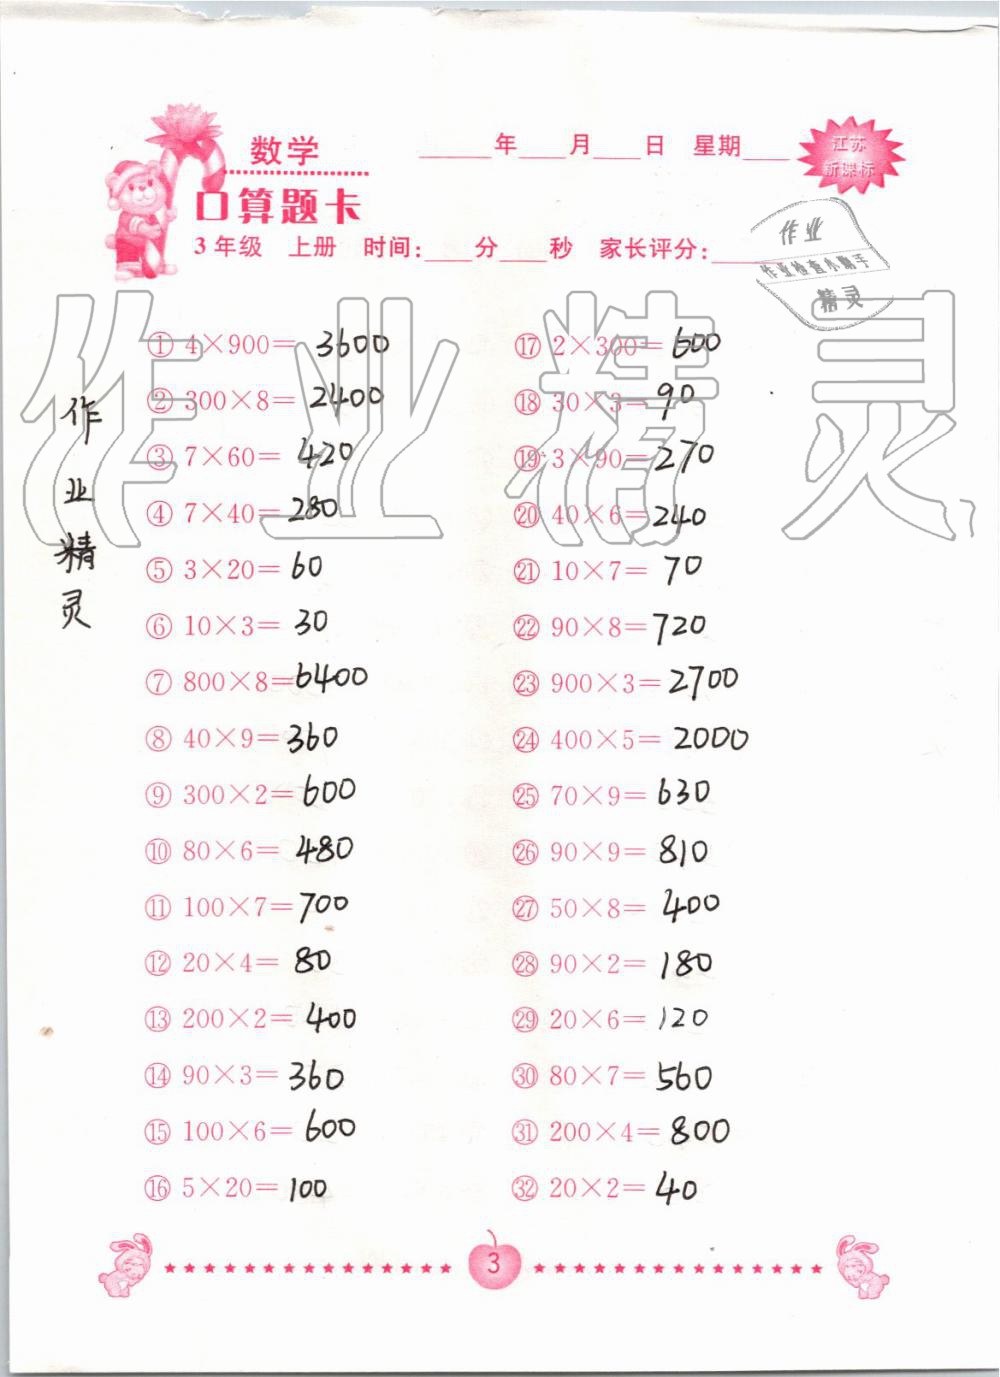 数学
______年____月____日 星期____
江苏
新课标
口算题卡
3年级 上册 时间:____分____秒 家长评分:____
作业
作业检查小助手
精灵
作业精灵
作业精灵
① 4×900= 3600
② 300×8= 2400
③ 7×60= 420
④ 7×40= 280
⑤ 3×20= 60
⑥ 10×3= 30
⑦ 800×8= 6400
⑧ 40×9= 360
⑨ 300×2= 600
⑩ 80×6= 480
⑪ 100×7= 700
⑫ 20×4= 80
⑬ 200×2= 400
⑭ 90×3= 360
⑮ 100×6= 600
⑯ 5×20= 100
⑰ 2×300= 600
⑱ 30×3= 90
⑲ 3×90= 270
⑳ 40×6= 240
㉑ 10×7= 70
㉒ 90×8= 720
㉓ 900×3= 2700
㉔ 400×5= 2000
㉕ 70×9= 630
㉖ 90×9= 810
㉗ 50×8= 400
㉘ 90×2= 180
㉙ 20×6= 120
㉚ 80×7= 560
㉛ 200×4= 800
㉜ 20×2= 40
3